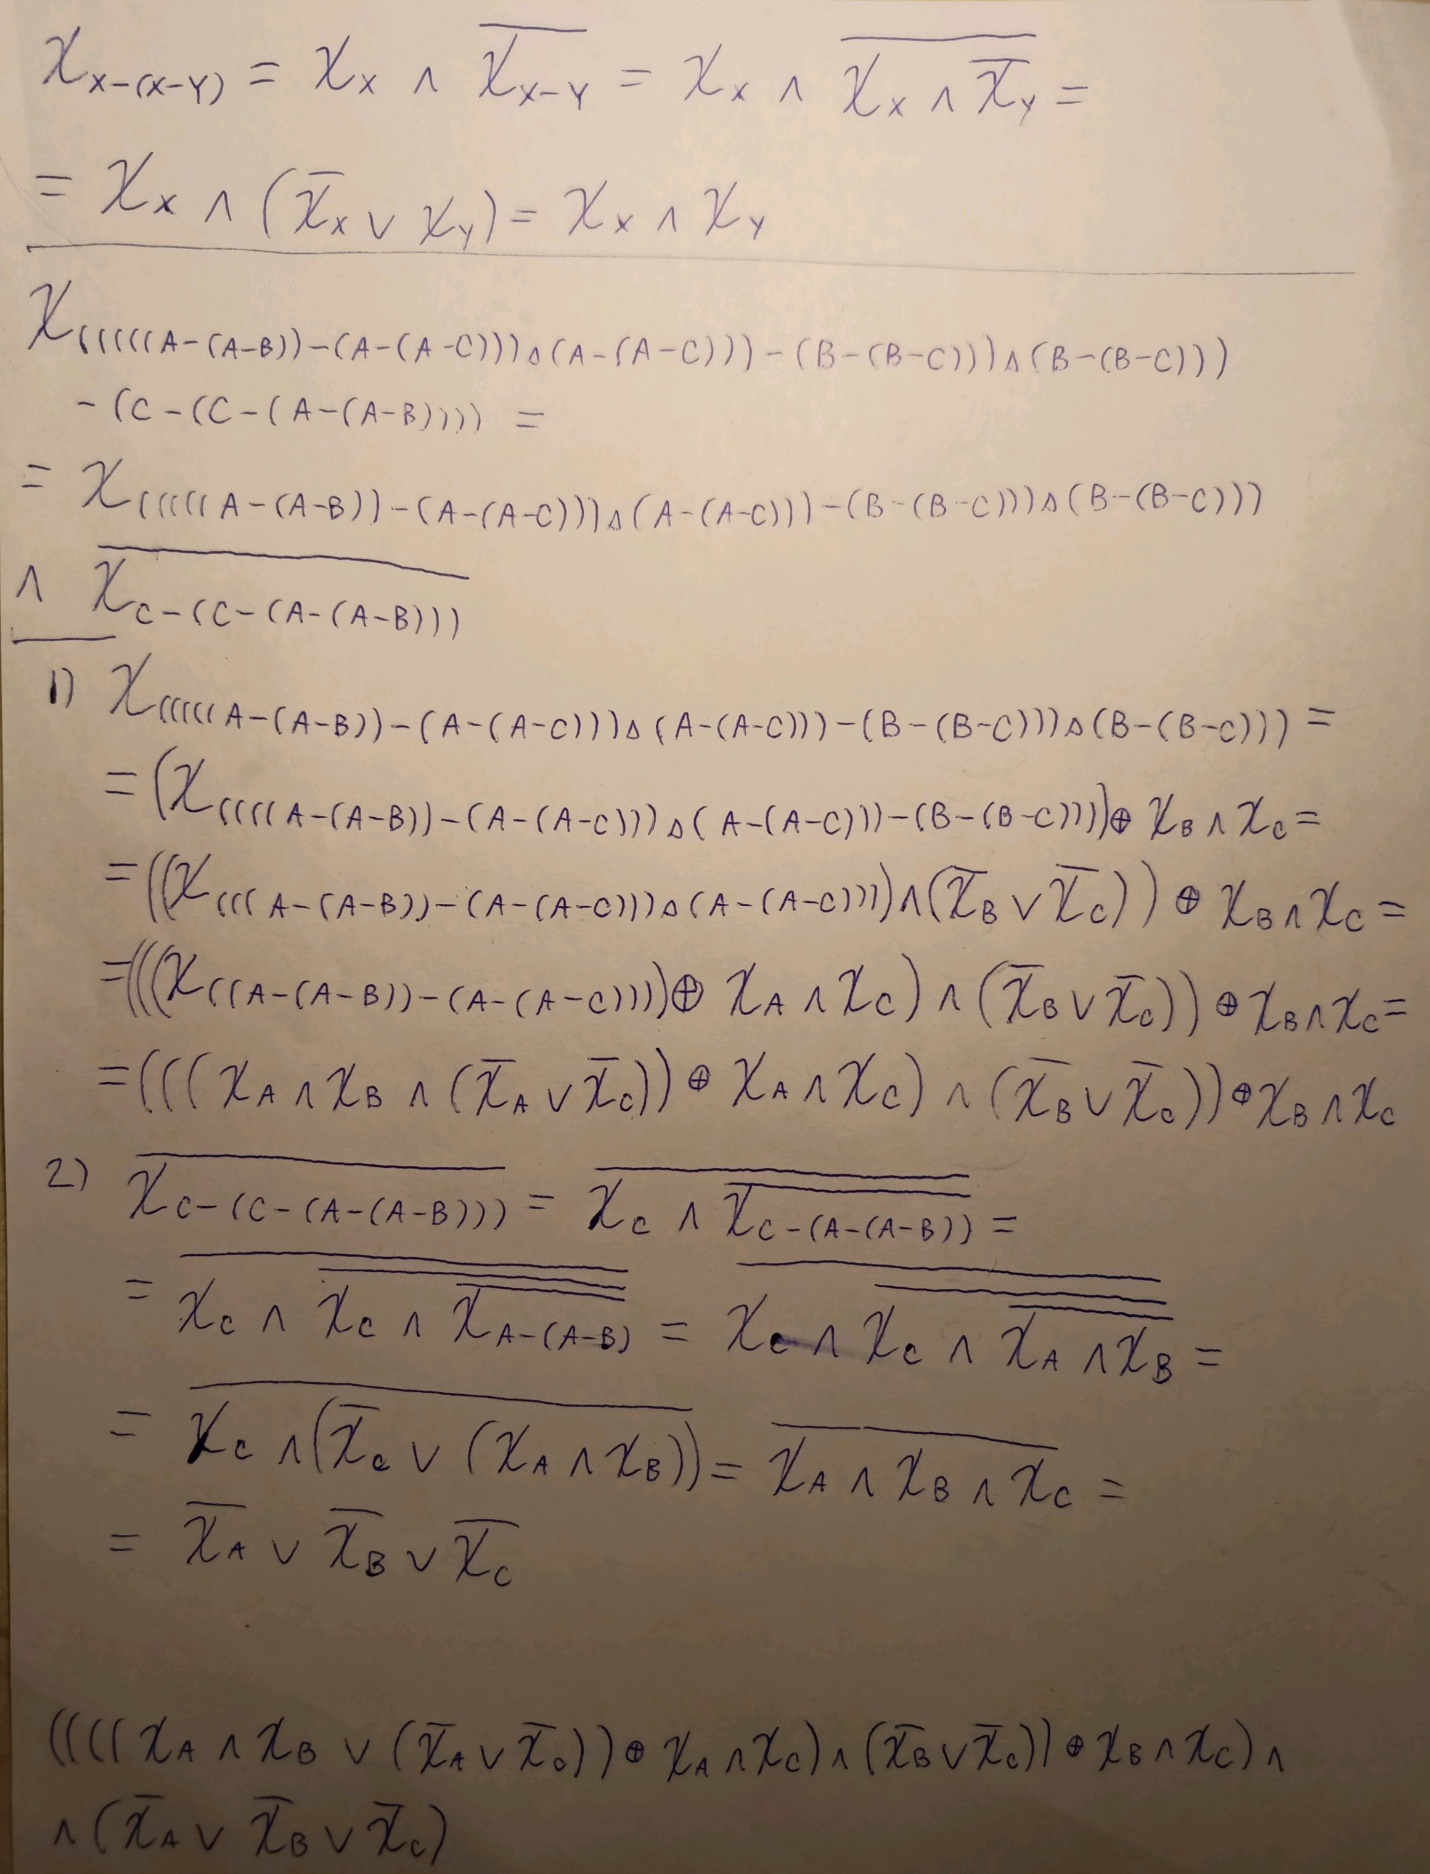 χ_{X-(X-Y)} = χ_X ∧ \overline{χ_{X-Y}} = χ_X ∧ \overline{χ_X ∧ \overline{χ_Y}} =
= χ_X ∧ (\overline{χ_X} ∨ χ_Y) = χ_X ∧ χ_Y
χ_{((((((A-(A-B))-(A-(A-C)))△(A-(A-C)))-(B-(B-C)))△(B-(B-C)))
-(C-(C-(A-(A-B))))} =
= χ_{(((((A-(A-B))-(A-(A-C)))△(A-(A-C)))-(B-(B-C)))△(B-(B-C)))}
∧ \overline{χ_{C-(C-(A-(A-B)))}}
1) χ_{(((((A-(A-B))-(A-(A-C)))△(A-(A-C)))-(B-(B-C)))△(B-(B-C)))} =
= (χ_{((((A-(A-B))-(A-(A-C)))△(A-(A-C)))-(B-(B-C)))}) ⊕ χ_B ∧ χ_C =
= ((χ_{(((A-(A-B))-(A-(A-C)))△(A-(A-C)))}) ∧ (\overline{χ_B} ∨ \overline{χ_C})) ⊕ χ_B ∧ χ_C =
= (((χ_{((A-(A-B))-(A-(A-C)))}) ⊕ χ_A ∧ χ_C) ∧ (\overline{χ_B} ∨ \overline{χ_C})) ⊕ χ_B ∧ χ_C =
= (((χ_A ∧ χ_B ∧ (\overline{χ_A} ∨ \overline{χ_C})) ⊕ χ_A ∧ χ_C) ∧ (\overline{χ_B} ∨ \overline{χ_C})) ⊕ χ_B ∧ χ_C
2) \overline{χ_{C-(C-(A-(A-B)))}} = \overline{χ_C ∧ \overline{\overline{χ_{C-(A-(A-B))}}}} =
= \overline{χ_C ∧ \overline{χ_C ∧ \overline{χ_{A-(A-B)}}}} = \overline{χ_C ∧ \overline{χ_C ∧ \overline{χ_A ∧ χ_B}}} =
= \overline{χ_C ∧ (\overline{χ_C} ∨ (χ_A ∧ χ_B))} = \overline{χ_A ∧ χ_B ∧ χ_C} =
= \overline{χ_A} ∨ \overline{χ_B} ∨ \overline{χ_C}
((((χ_A ∧ χ_B ∨ (\overline{χ_A} ∨ \overline{χ_C})) ⊕ χ_A ∧ χ_C) ∧ (\overline{χ_B} ∨ \overline{χ_C})) ⊕ χ_B ∧ χ_C) ∧
∧ (\overline{χ_A} ∨ \overline{χ_B} ∨ \overline{χ_C})